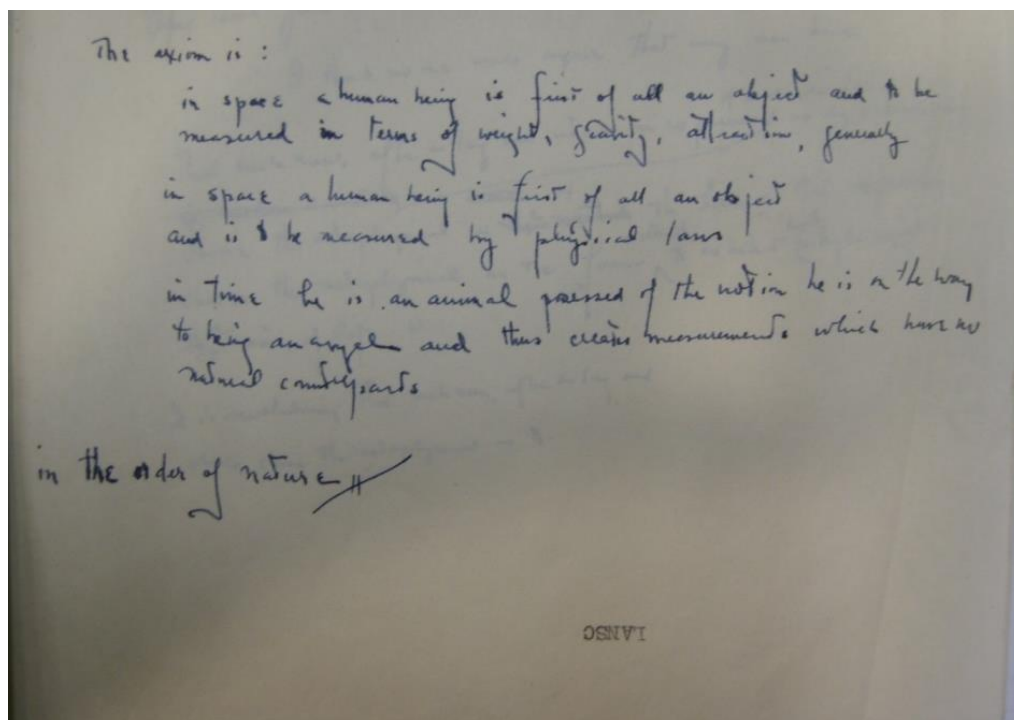 The axiom is :
in space a human being is first of all an object and to be
measured in terms of weight, gravity, attraction, generally
in space a human being is first of all an object
and is to be measured by physical laws
in time he is an animal posessed of the notion he is on the way
to being an angel and thus creates measurements which have no
natural counterparts
in the order of nature
LANSC